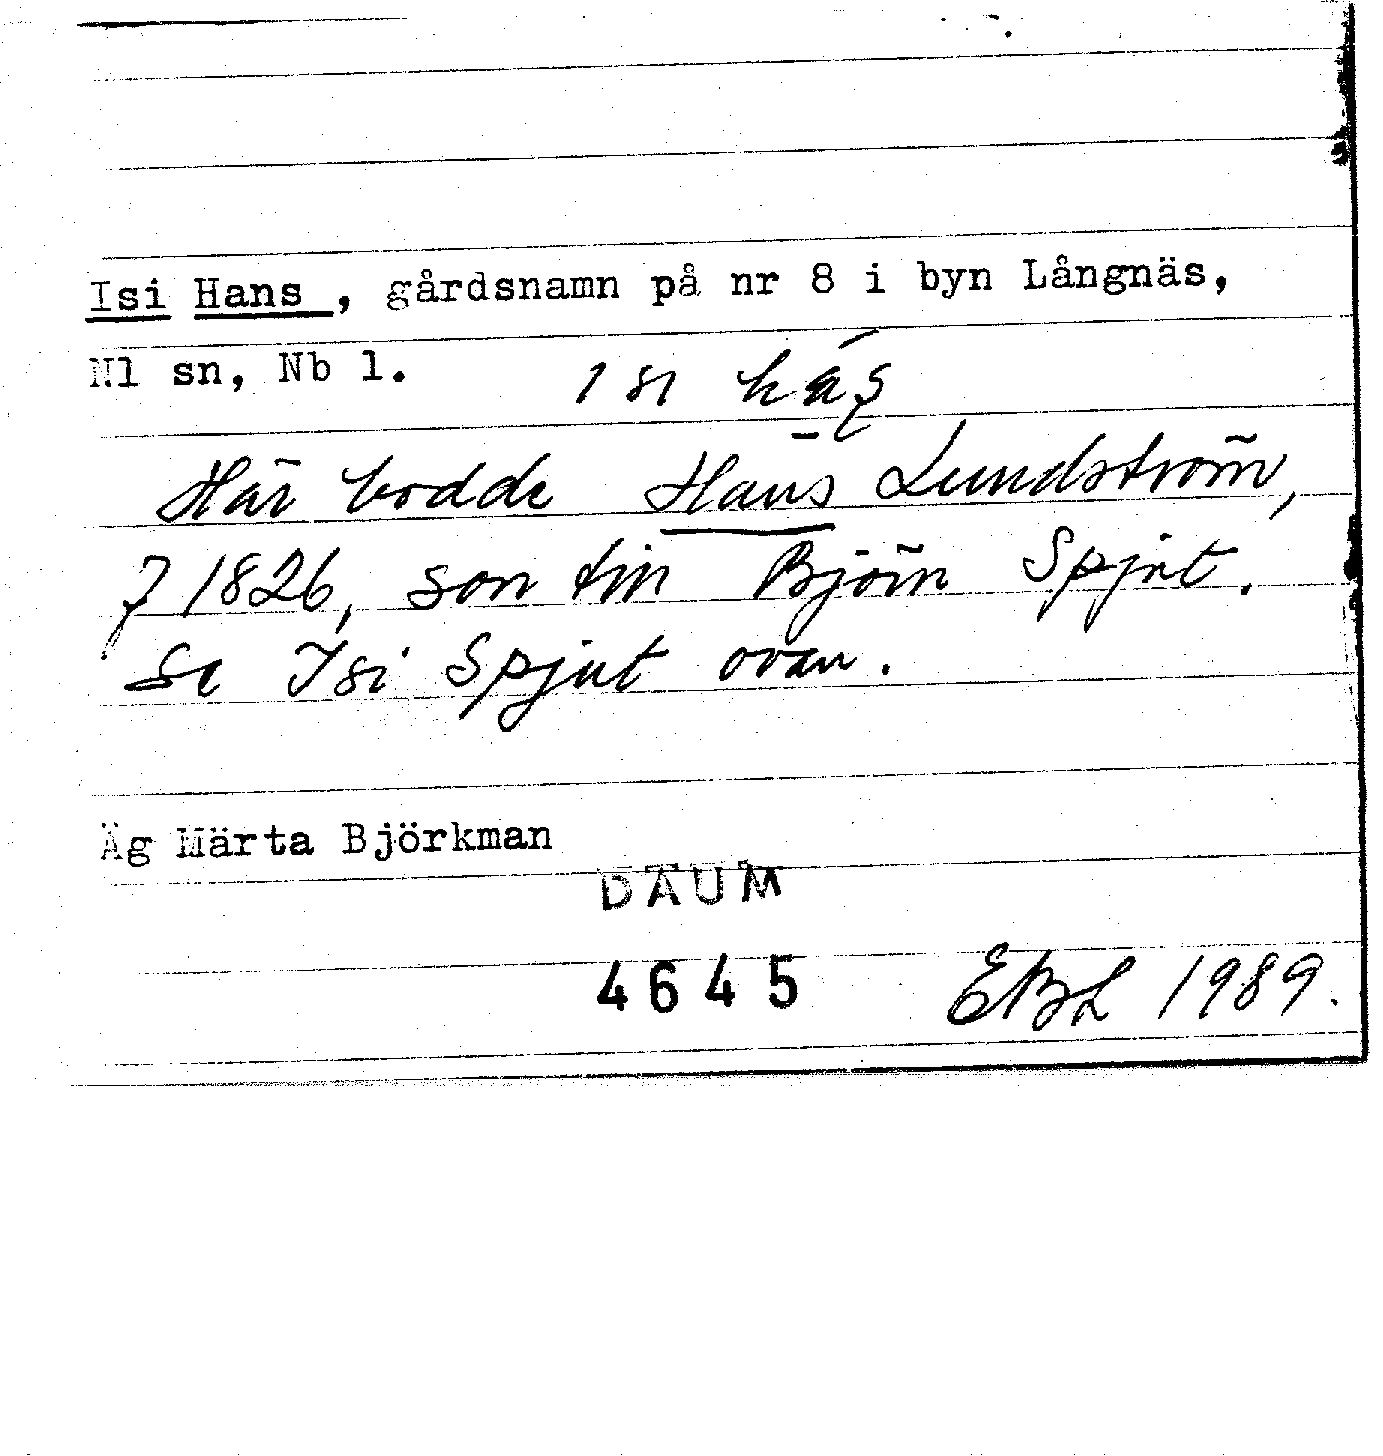 Isi Hans , gårdsnamn på nr 8 i byn Långnäs,
Nl sn, Nb l. ısı
Här bodde Hans Lundström,
f 1826, son till Björn Spjut.
Se Isi Spjut ovan.
Äg Märta Björkman
DAUM
4645 EBL 1989.